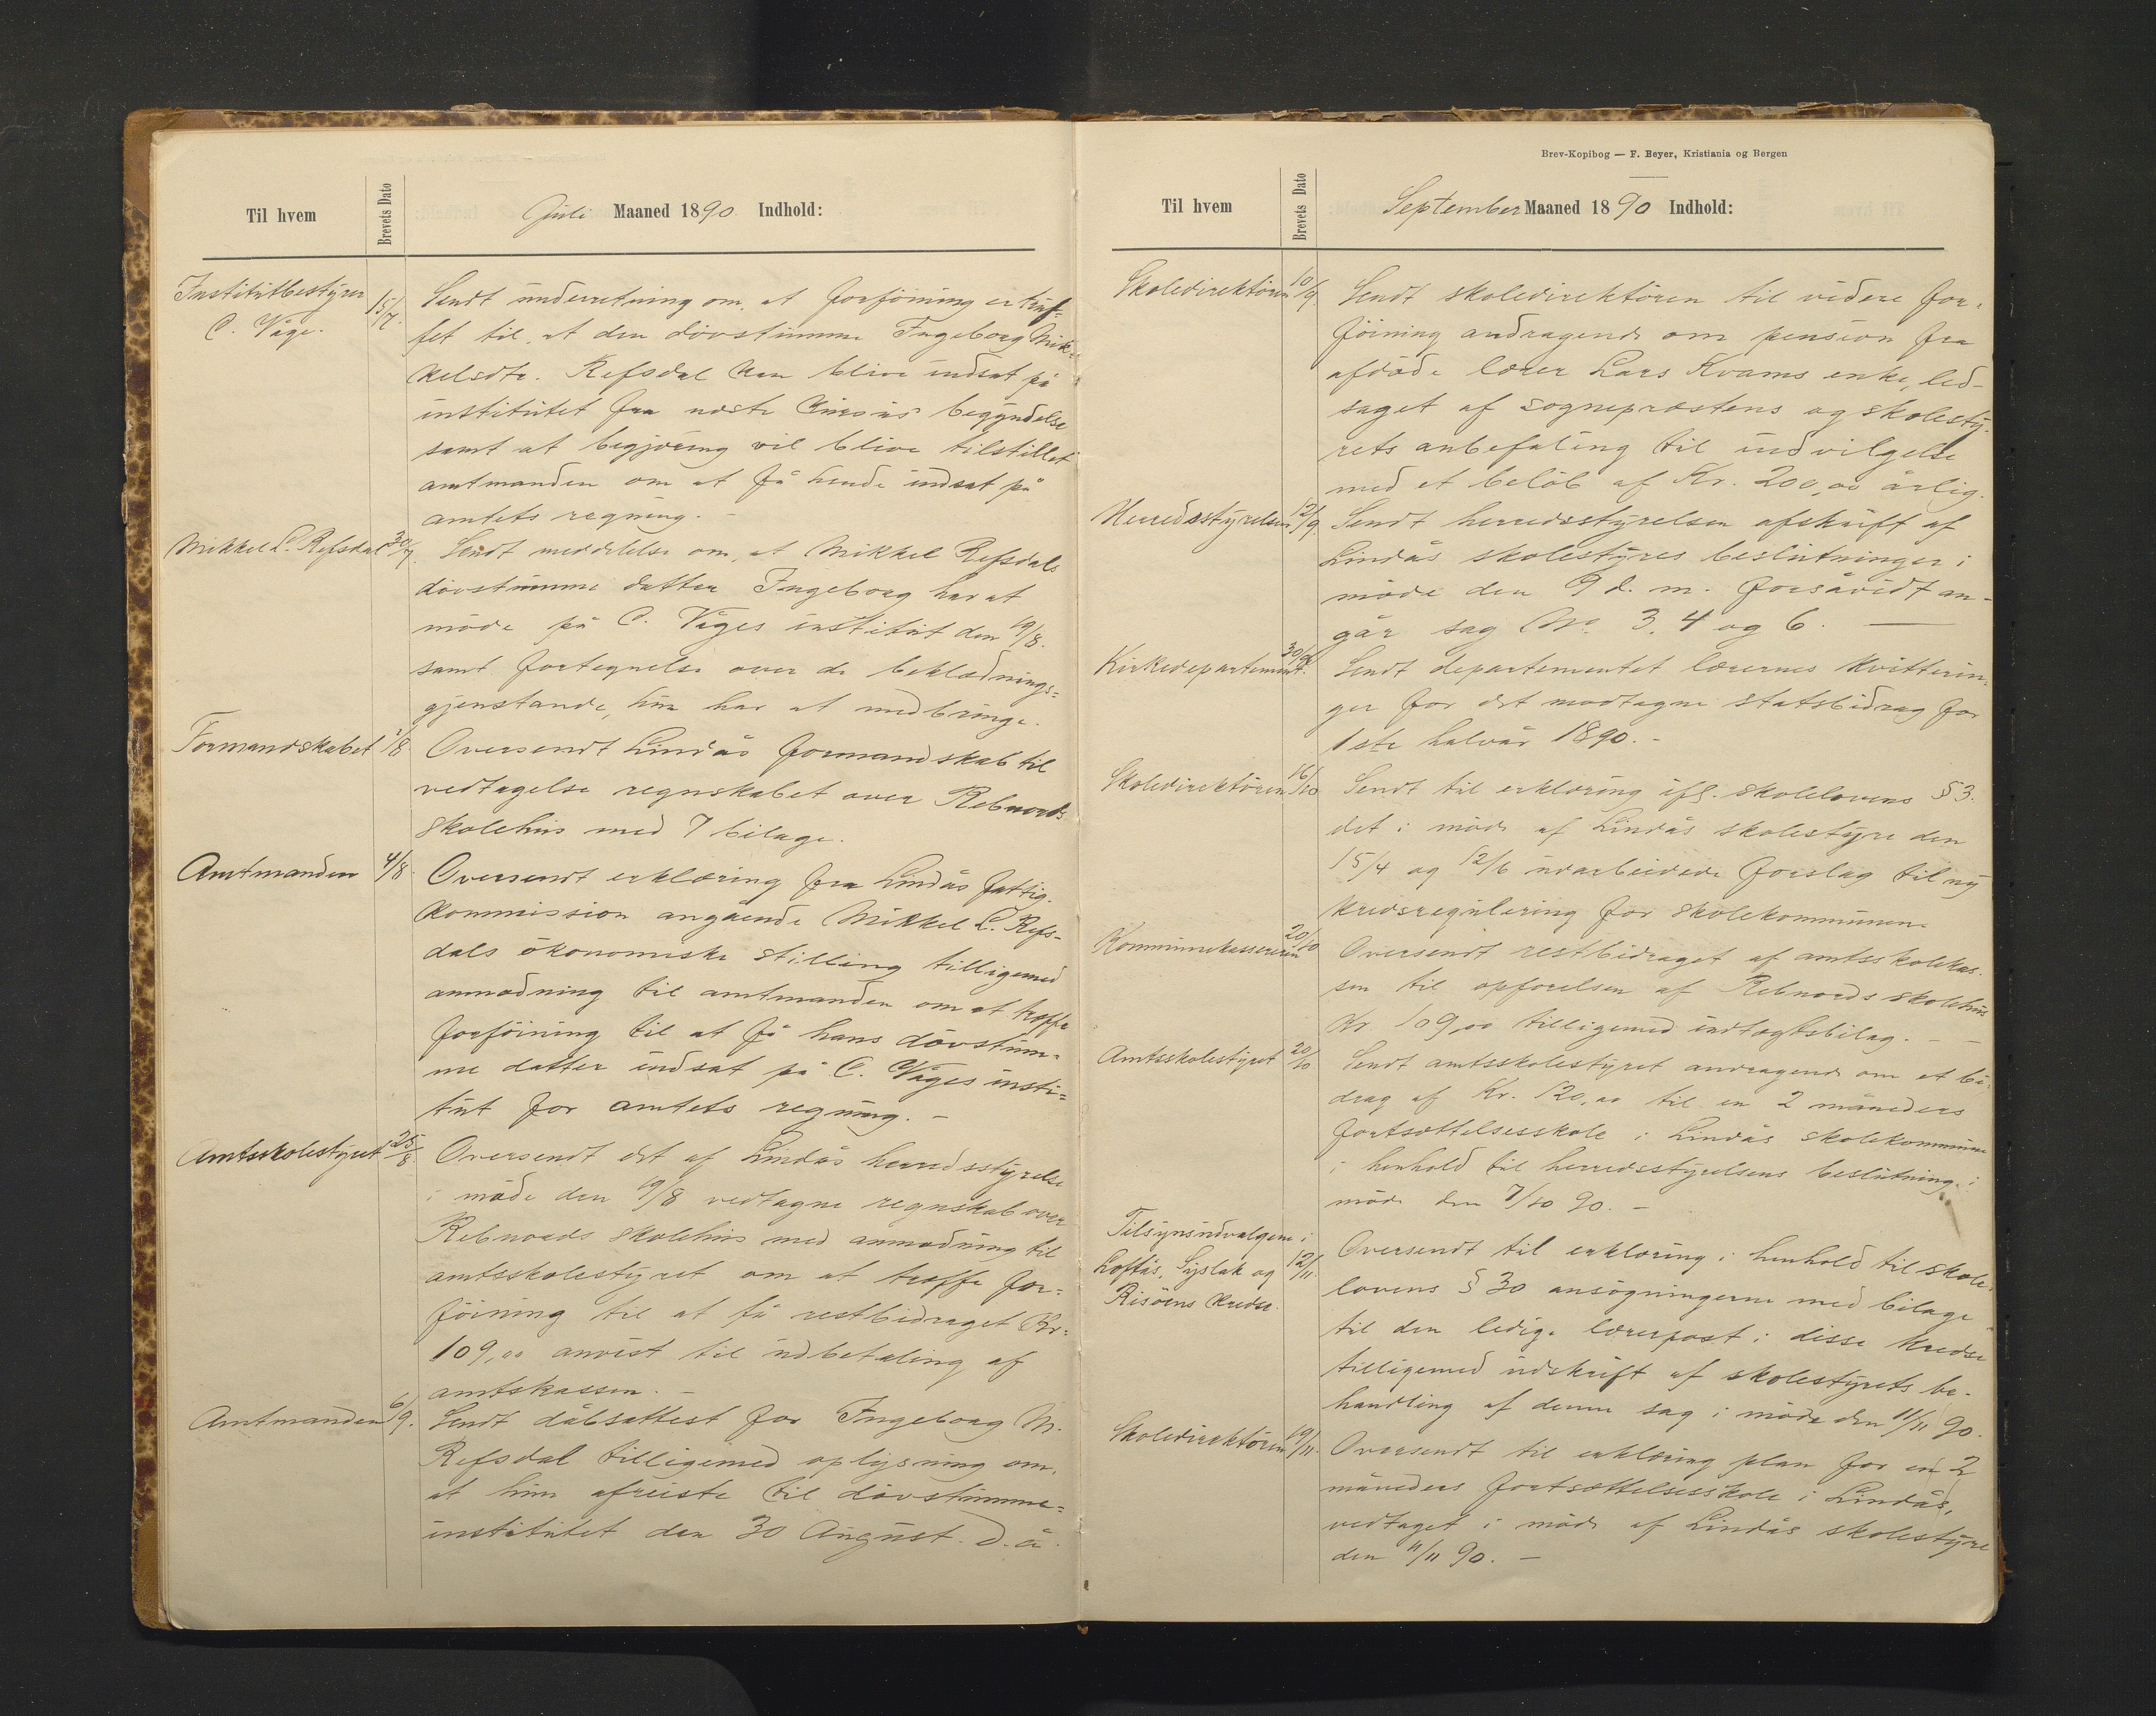 Til hvem
Brevets Dato
Juli Maaned 1890. Indhold:
Institutbestyrer
C. Våge.
15/7.
Sendt underretning om, at forföining er truf=
fet til, at den dövstumme Ingeborg Mik=
kelsdtr. Refsdal kan blive indsat på
institutet fra næste kursus' begyndelse
samt at begjæring vil blive tilstillet
amtmanden om at få hende indsat på
amtets regning. -
Mikkel L. Refsdal
30/7.
Sendt meddelelse om, at Mikkel Refsdals
dövstumme datter Ingeborg har at
möde på C. Våges institut den 19/8.
samt fortegnelse over de beklædnings=
gjenstande, hun har at medbringe.
Formandskabet
1/8
Oversendt Lindås formandskab til
vedtagelse regnskabet over Rebnords
skolehus med 7 bilage.
Amtmanden
4/8.
Oversendt erklæring fra Lindås fattig-
kommission angående Mikkel L. Refs-
dals ökonomiske stilling tilligemed
anmodning til amtmanden om at træffe
forföining til at få hans dövstum=
me datter indsat på C. Våges insti=
tut for amtets regning. -
Amtsskolestyret
25/8.
Oversendt det af Lindås herredsstyrelse
i möde den 19/8 vedtagne regnskab over
Rebnords skolehus med anmodning til
amtsskolestyret om at træffe for=
föining til at få restbidraget Kr.
109,00 anvist til udbetaling af
amtskassen. -
Amtmanden
6/9.
Sendt dåbsattest for Ingeborg M.
Refsdal tilligemed oplysning om,
at hun afreiste til dövstumme=
institutet den 30 August. d. å.
Brev-Kopibog — F. Beyer, Kristiania og Bergen
Til hvem
Brevets Dato
September Maaned 1890 Indhold:
Skoledirektören
10/9.
Sendt skoledirektören til videre for=
föining andragende om pension fra
afdöde lærer Lars Kvams enke, led-
saget af sogneprestens og skolesty-
rets anbefaling til indvilgelse
med et belöb af Kr. 200,00 årlig.
Herredsstyrelsen
12/9.
Sendt herredsstyrelsen afskrift af
Lindås skolestyres beslutninger i
möde den 9 d. m. forsåvidt an-
går sag No. 3, 4 og 6. —
Kirkedepartementet.
30/9
Sendt departementet lærernes kvitterin-
ger for det modtagne statsbidrag for
1ste halvår 1890. -
Skoledirektören
16/10
Sendt til erklæring ifl. skolelovens § 3.
det i möde af Lindås skolestyre den
15/4 og 12/6 udarbeidede forslag til ny
kredsregulering for skolekommunen.
Kommunekassereren
20/10
Oversendt restbidraget af amtsskolekas-
sen til opförelsen af Rebnords skolehus
Kr. 109,00 tilligemed indtægtsbilag. - -
Amtsskolestyret
20/10
Sendt amtsskolestyret andragende om et bi-
drag af Kr. 120,00 til en 2 måneders
fortsættelsesskole i Lindås skolekommune
i henhold til herredsstyrelsens beslutning i
möde den 7/10 90. -
Tilsynsudvalgene i
Loftås, Syslak og
Risöens kredse.
12/11.
Oversendt til erklæring i henhold til skole-
lovens § 30 ansögningerne med bilage
til den ledige lærerpost i disse kredse
tilligemed udskrift af skolestyrets be-
handling af denne sag i möde den 11/11 90.
Skoledirektören
19/11.
Oversendt til erklæring plan for en 2
måneders fortsættelsesskole i Lindås,
vedtaget i möde af Lindås skolestyre
den 11/11 90. -